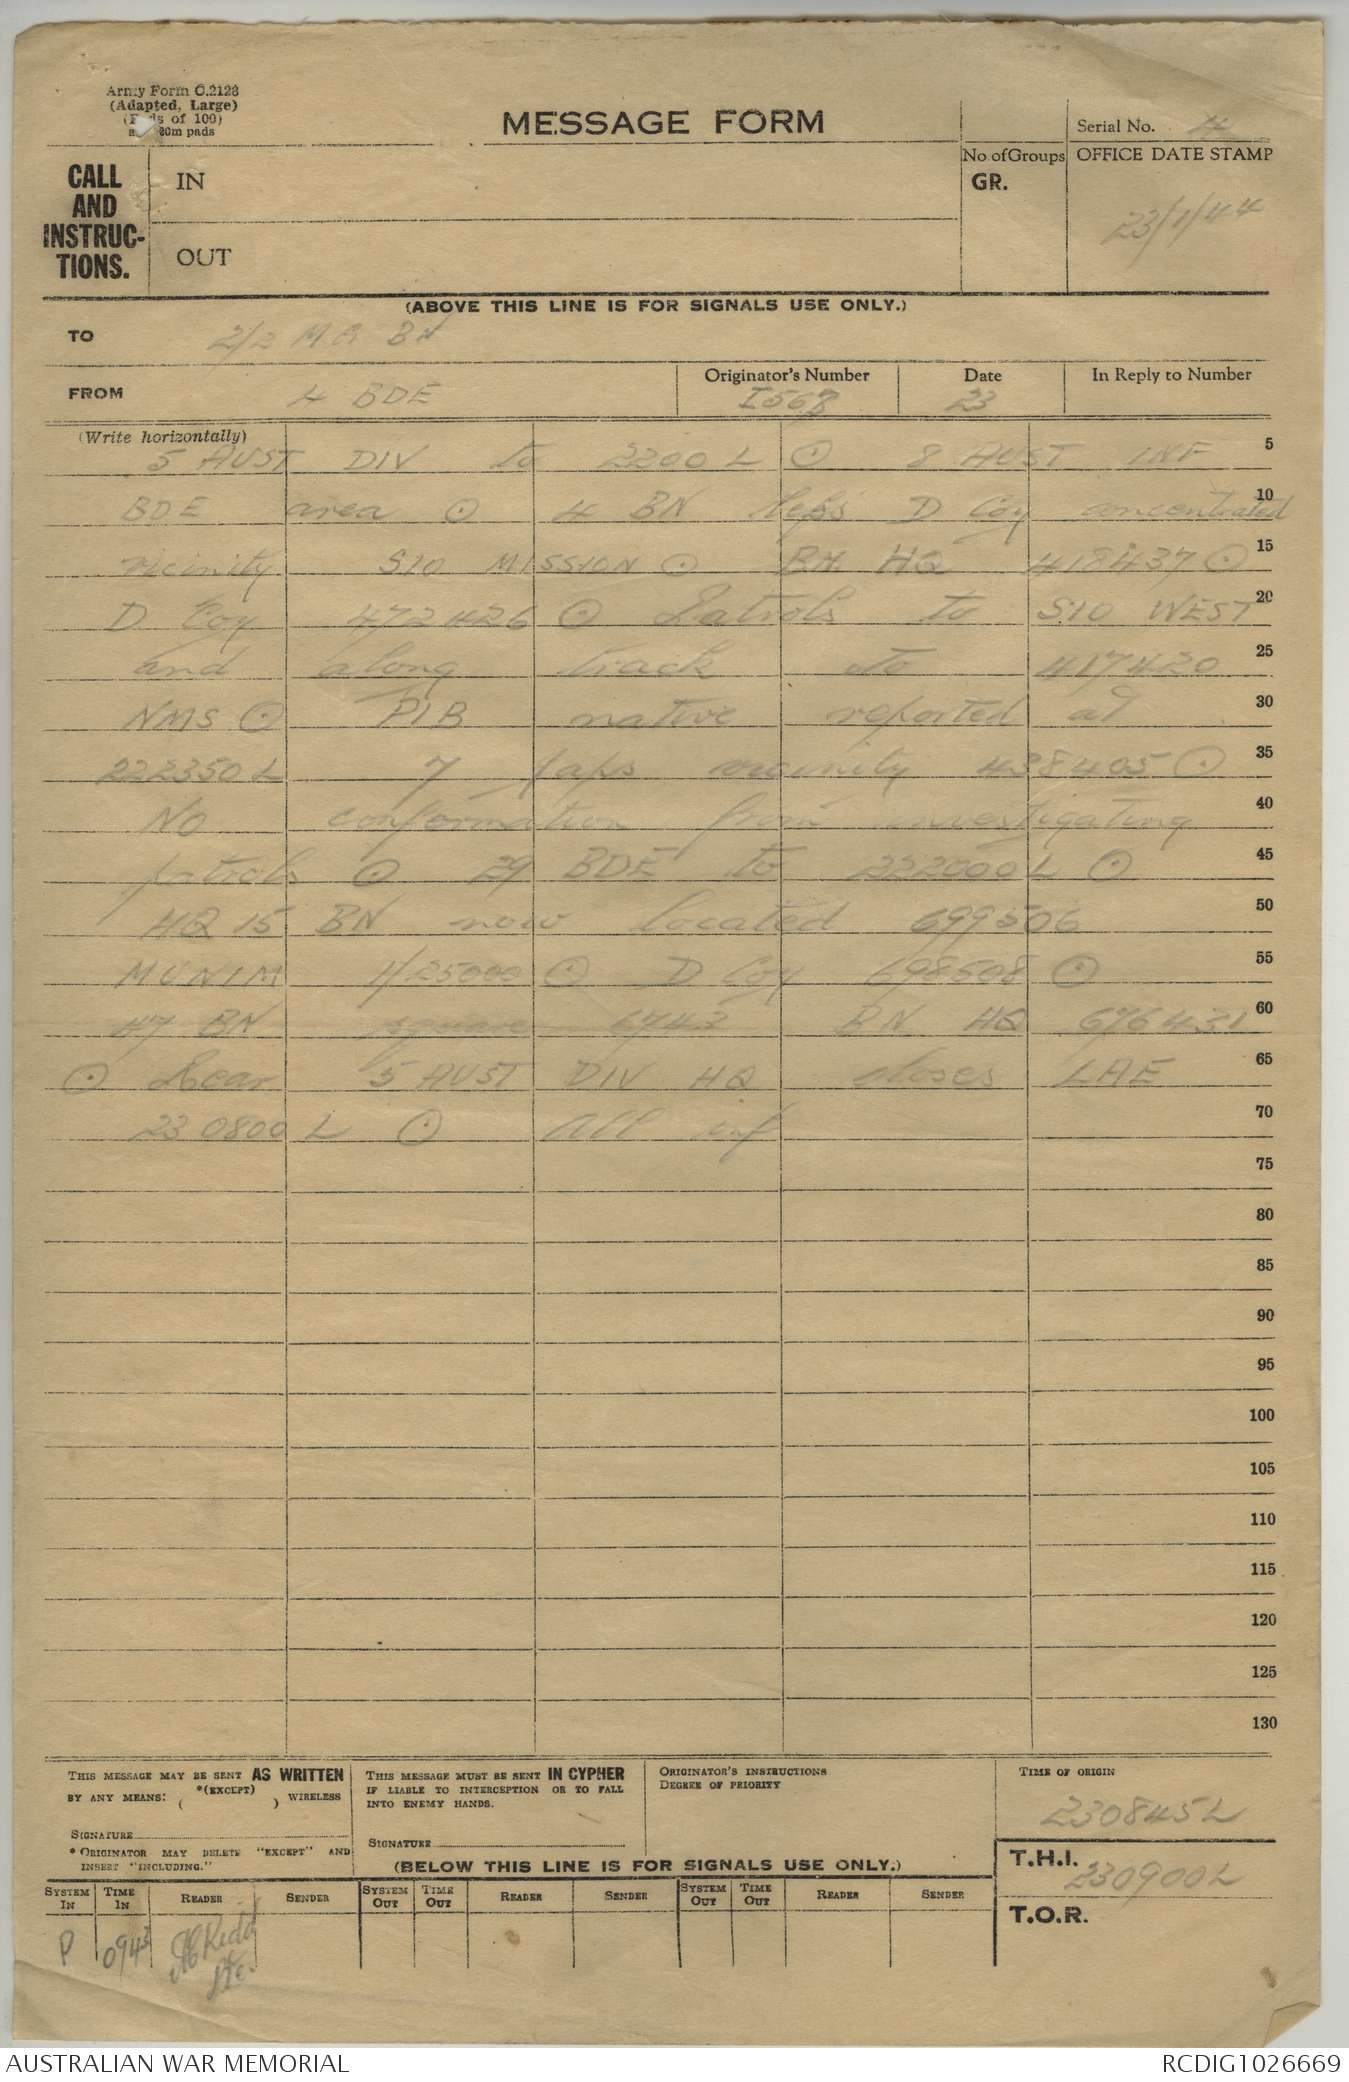 Army Form C.2128
(Adapted, Large)
(Pads of 100)
20m pads
MESSAGE FORM
Serial No. 4
CALL
AND
INSTRUC-
TIONS.
IN
OUT
No of Groups
GR.
OFFICE DATE STAMP
23/1/44
(ABOVE THIS LINE IS FOR SIGNALS USE ONLY.)
TO 2/2 MG BN
FROM 4 BDE
Originator's Number
I568
Date
23
In Reply to Number
(Write horizontally)
5 AUST DIV to 2200 L ⊙ 8 AUST INF 5
BDE area ⊙ 4 BN less D Coy concentrated 10
vicinity SIO MISSION ⊙ BN HQ 418437 ⊙ 15
D Coy 472426 ⊙ Patrols to SIO WEST 20
and along track to 417420 25
NMS ⊙ PIB native reported at 30
222350 L 7 Japs vicinity 438405 ⊙ 35
NO conformation from investigating 40
patrols ⊙ 29 BDE to 222000 L ⊙ 45
HQ 15 BN now located 699506 50
MUNIM 1/25000 ⊙ D Coy 698508 ⊙ 55
47 BN square 6743 BN HQ 676431 60
⊙ Rear 5 AUST DIV HQ closes LAE 65
23 0800 L ⊙ all inf 70
75
80
85
90
95
100
105
110
115
120
125
130
THIS MESSAGE MAY BE SENT AS WRITTEN
BY ANY MEANS: *(EXCEPT) ( ) WIRELESS
SIGNATURE
* ORIGINATOR MAY DELETE "EXCEPT" AND
INSERT "INCLUDING."
THIS MESSAGE MUST BE SENT IN CYPHER
IF LIABLE TO INTERCEPTION OR TO FALL
INTO ENEMY HANDS.
SIGNATURE
ORIGINATOR'S INSTRUCTIONS
DEGREE OF PRIORITY
TIME OF ORIGIN
230845L
(BELOW THIS LINE IS FOR SIGNALS USE ONLY.)
T.H.I. 230900L
T.O.R.
SYSTEM IN TIME IN READER SENDER SYSTEM OUT TIME OUT READER SENDER SYSTEM OUT TIME OUT READER SENDER
P 0943 Kidd
AUSTRALIAN WAR MEMORIAL
RCDIG1026669